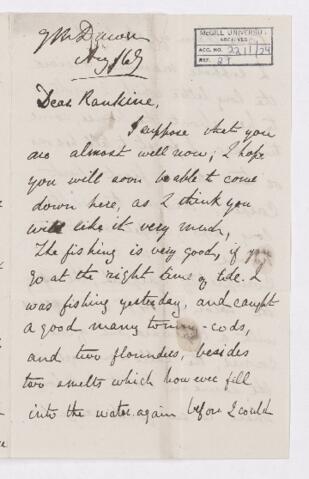 GM Dawson
Aug/67
McGILL UNIVERSITY
ARCHIVES
ACC. NO.
REF.
Dear Rankine,
I suppose that you
are almost well now; I hope
you will soon be able to come
down here, as I think you
will like it very much,
The fishing is very good, if you
go at the right time of tide. I
was fishing yesterday, and caught
a good many tommy-cods,
and two flounders, besides
two smelts which however fell
into the water again before I could